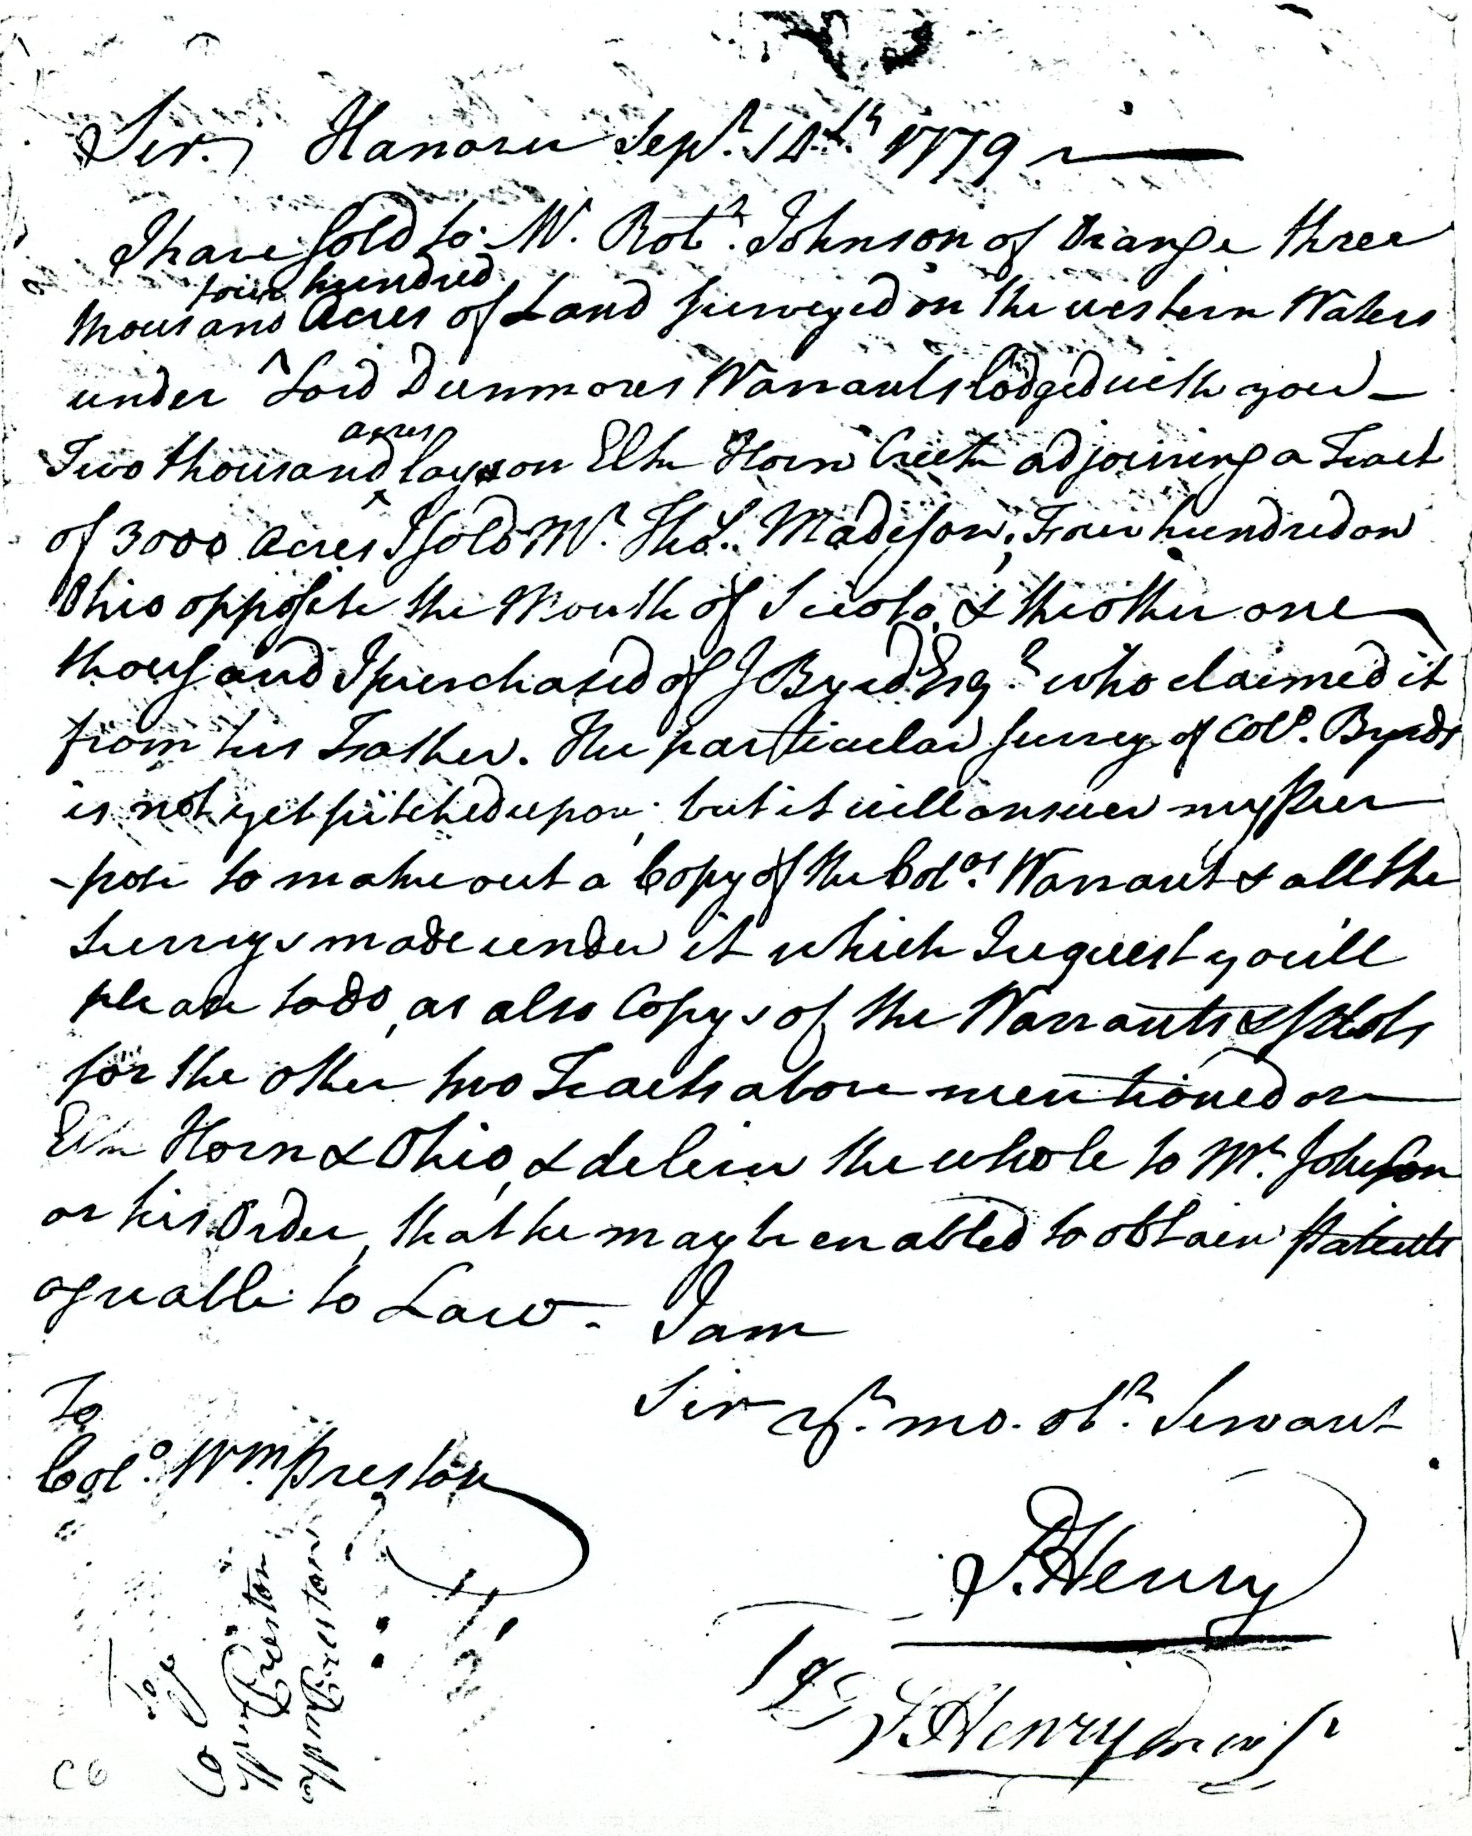 Sir, Hanover Sepr. 14th. 1779
I have sold to Mr. Robt. Johnson of Orange three
four hundred
thousand Acres of Land surveyed on the western Waters
under ^ Lord Dunmores Warrants lodged with you –
acres
Two thousand ^ lays on Elk Horn Creek adjoining a Tract
of 3000 Acres I sold Mr. Thos. Madison, Four hundred on
Ohio opposite the Mouth of Scioto, & the other one
thousand I purchased of J Byrd Esqr. who claimed it
from his Father. The particular survey of Colo. Byrds
is not yet pitched upon, but it will answer my Pur
-pose to make out a Copy of the Colos. Warrant & all the
surveys made under it which I request you'll
please to do, as also Copys of the Warrants & plots
for the other two Tracts above mentioned on
Elk Horn & Ohio, & deliver the whole to Mr. Johnson
or his Order, that he may be enabled to obtain Patents
agreable to Law – I am
Sir yr. mo. obt. Servant
To
Colo. Wm. Preston
P. Henry
P. Henry
Preston
Preston
C6